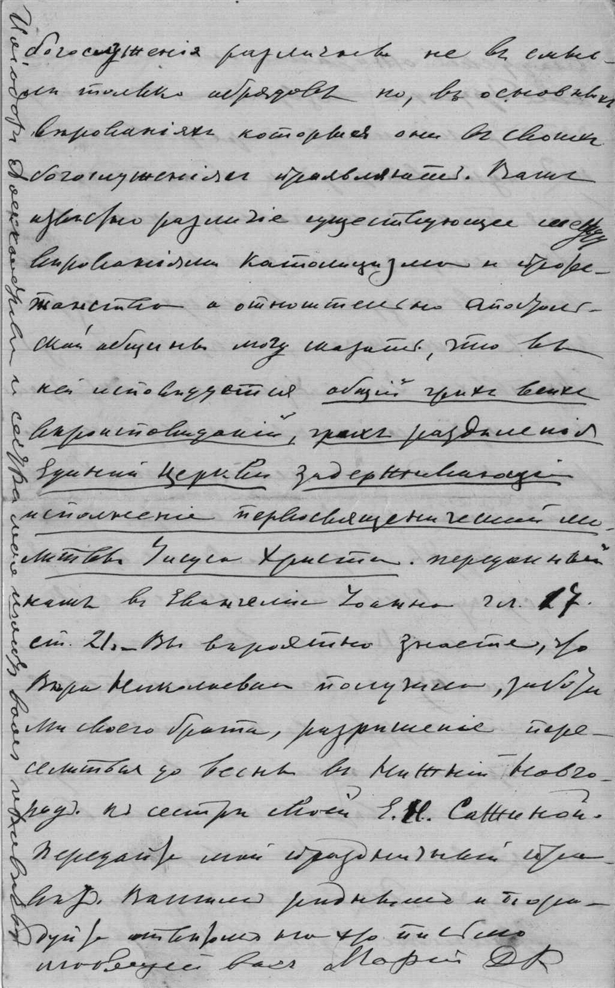 богослуженія различаемъ не въ смыс-
ли только обрядовъ но, въ основныхъ
вѣрованіяхъ которыя они въ своихъ
богослуженіяхъ проявляютъ. Вамъ
извѣстно различіе существующее между
вѣрованіями католицизма и проте-
танства а относительно апостоль-
ской общины могу сказать, что въ
ней исповѣдуется общій грѣхъ всѣхъ
вѣроисповѣданій, грѣхъ раздѣленія
Единой Церкви задерживающій
исполненіе первосвященнической мо
литвы Іисуса Христа. переданной
намъ въ Евангеліи Іоанна гл. 17.
ст. 21. – Вы вѣроятно знаете, что
Вѣра Николаевна получила, забота
ми своего брата, разрѣшеніе пере-
селиться до весны въ Нижній Новго-
родъ. къ сестрѣ моей Е. Н. Сажиной.
Передайте мой праздничный при-
вѣтъ. Вашимъ роднымъ и пора-
дуйте отвѣтомъ на это письмо
любящей васъ Марій